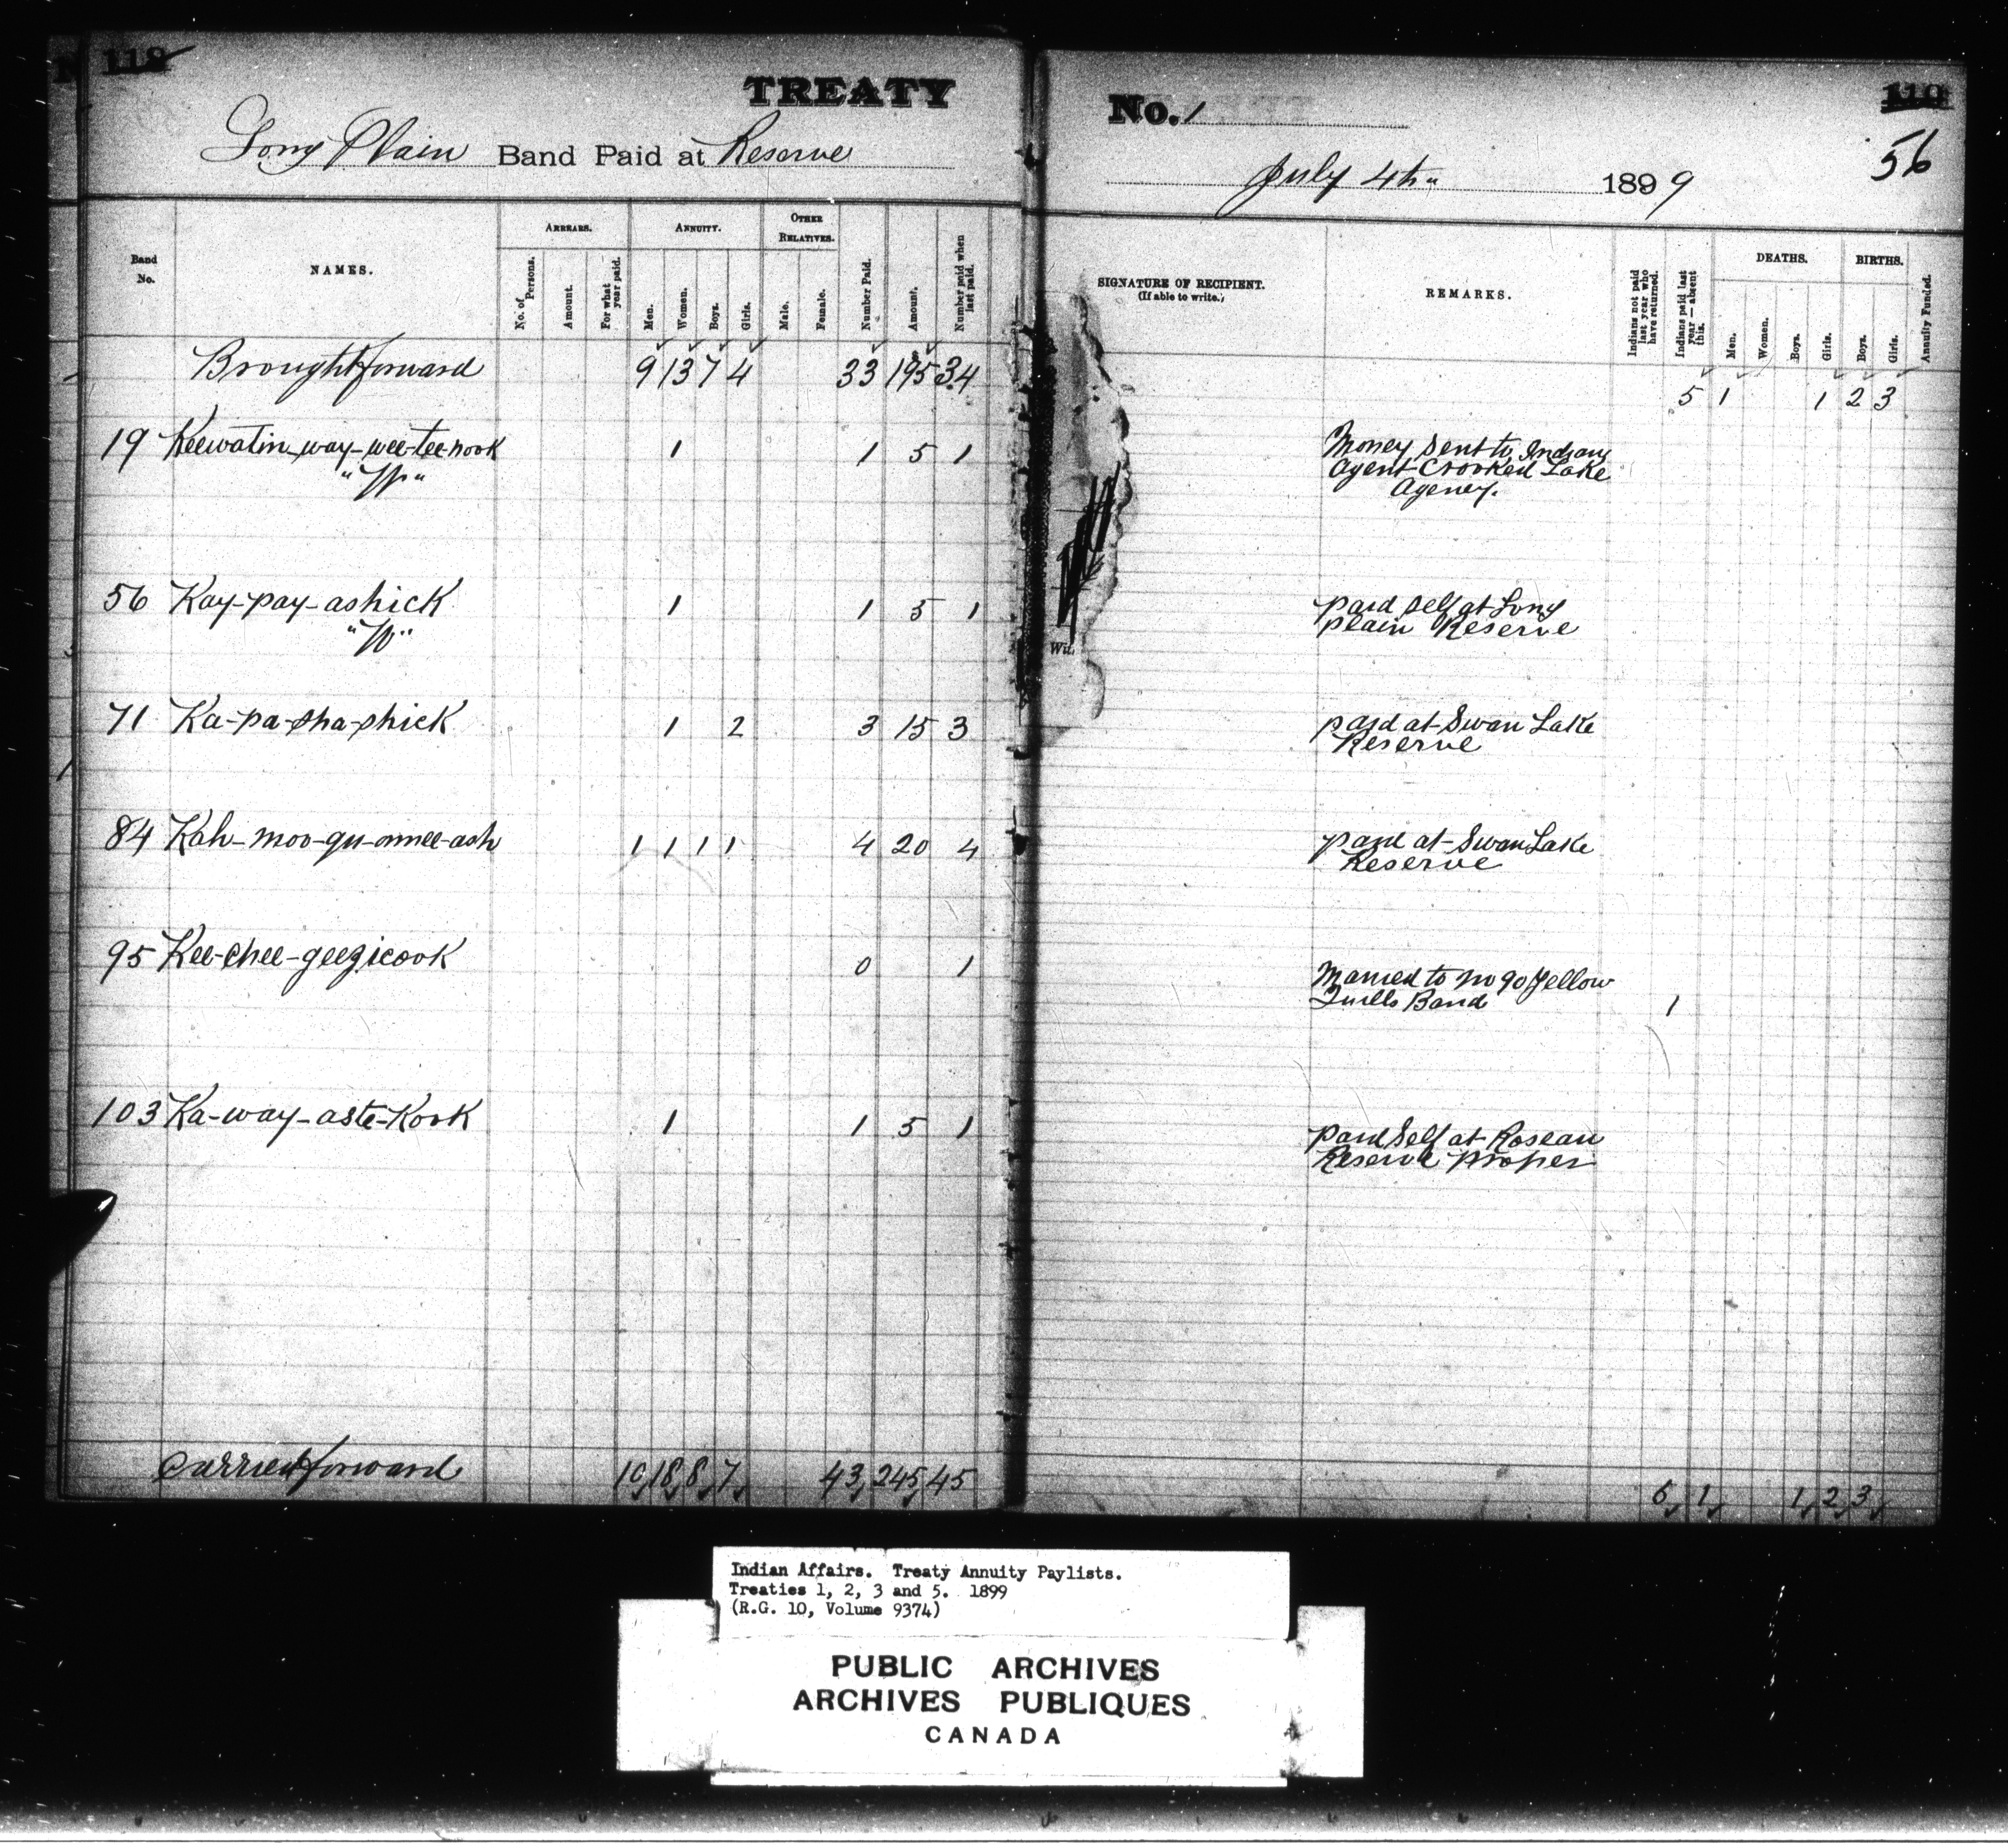 118
TREATY
No. 1
110
56
Long Plain Band Paid at Reserve
July 4th 1899
Band No.
NAMES.
ARREARS.
No. of Persons.
Amount.
For what year paid.
ANNUITY.
Men.
Women.
Boys.
Girls.
OTHER RELATIVES.
Male.
Female.
Number Paid.
Amount.
Number paid when last paid.
SIGNATURE OF RECIPIENT.
(If able to write.)
REMARKS.
Indians not paid last year who have returned.
Indians paid last year — absent this.
DEATHS.
Men.
Women.
Boys.
Girls.
BIRTHS.
Boys.
Girls.
Annuity Funded.
Brought forward 9 13 7 4 33 195 34 5 1 1 2 3
19 Keewatin-way-wee-tee-nook 1 1 5 1 Money sent to Indian
Agent Crooked Lake
Agency.
56 Kay-pay-ashick 1 1 5 1 paid self at Long
"W" plain Reserve
Wit.
71 Ka-pa-sha-shick 1 2 3 15 3 paid at Swan Lake
Reserve
84 Kah-moo-gu-onnee-ash 1 1 1 1 4 20 4 paid at Swan Lake
Reserve
95 Kee-chee-geezicook 0 1 Married to no 90 Yellow
Quills Band 1
103 Ka-way-aste-Kook 1 1 5 1 paid Self at Roseau
Reserve proper
Carried forward 10 18 8 7 43 245 45 6 1 1 2 3
Indian Affairs. Treaty Annuity Paylists.
Treaties 1, 2, 3 and 5. 1899
(R.G. 10, Volume 9374)
PUBLIC ARCHIVES
ARCHIVES PUBLIQUES
CANADA